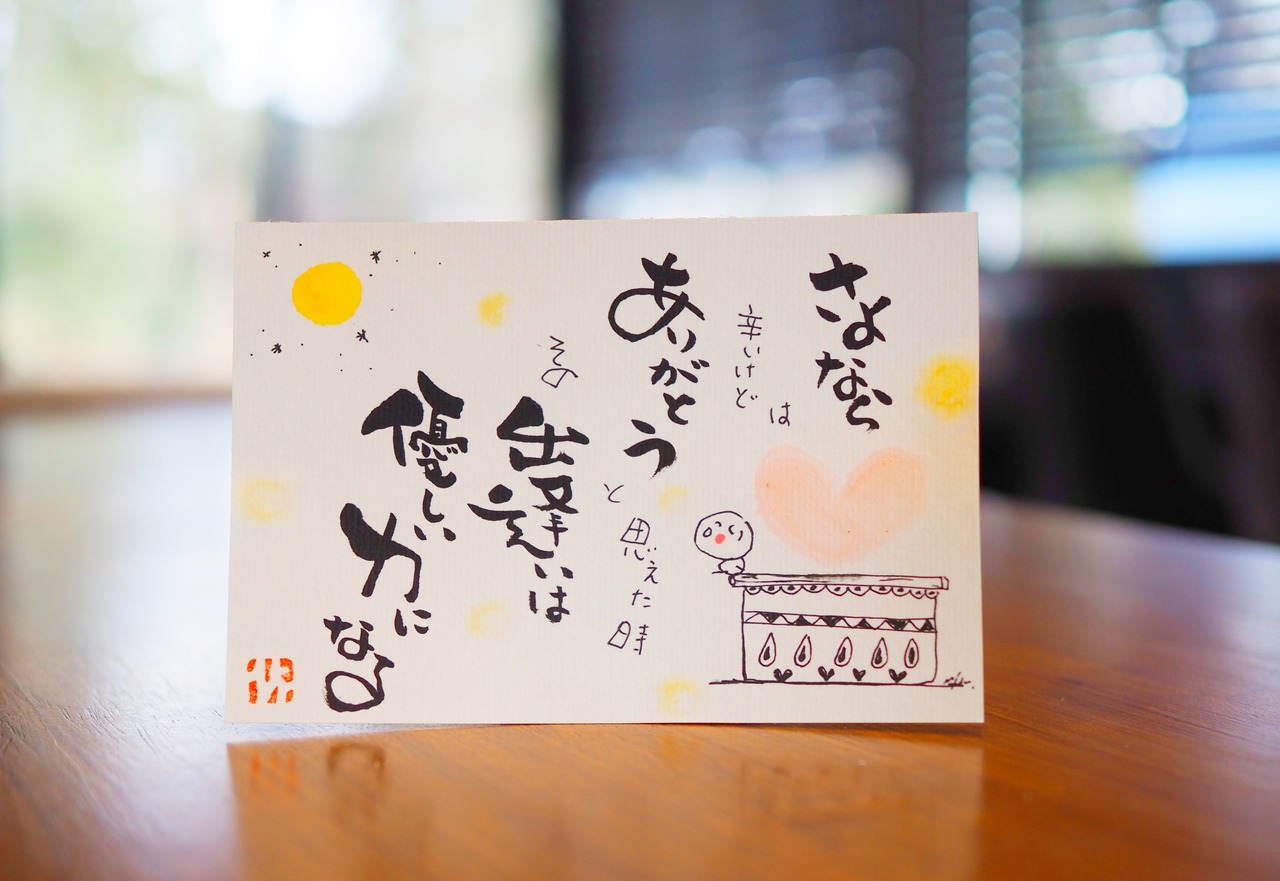 さよなら
は
辛いけど
ありがとう
と思えた時
その
出逢いは
優しい
力に
なる